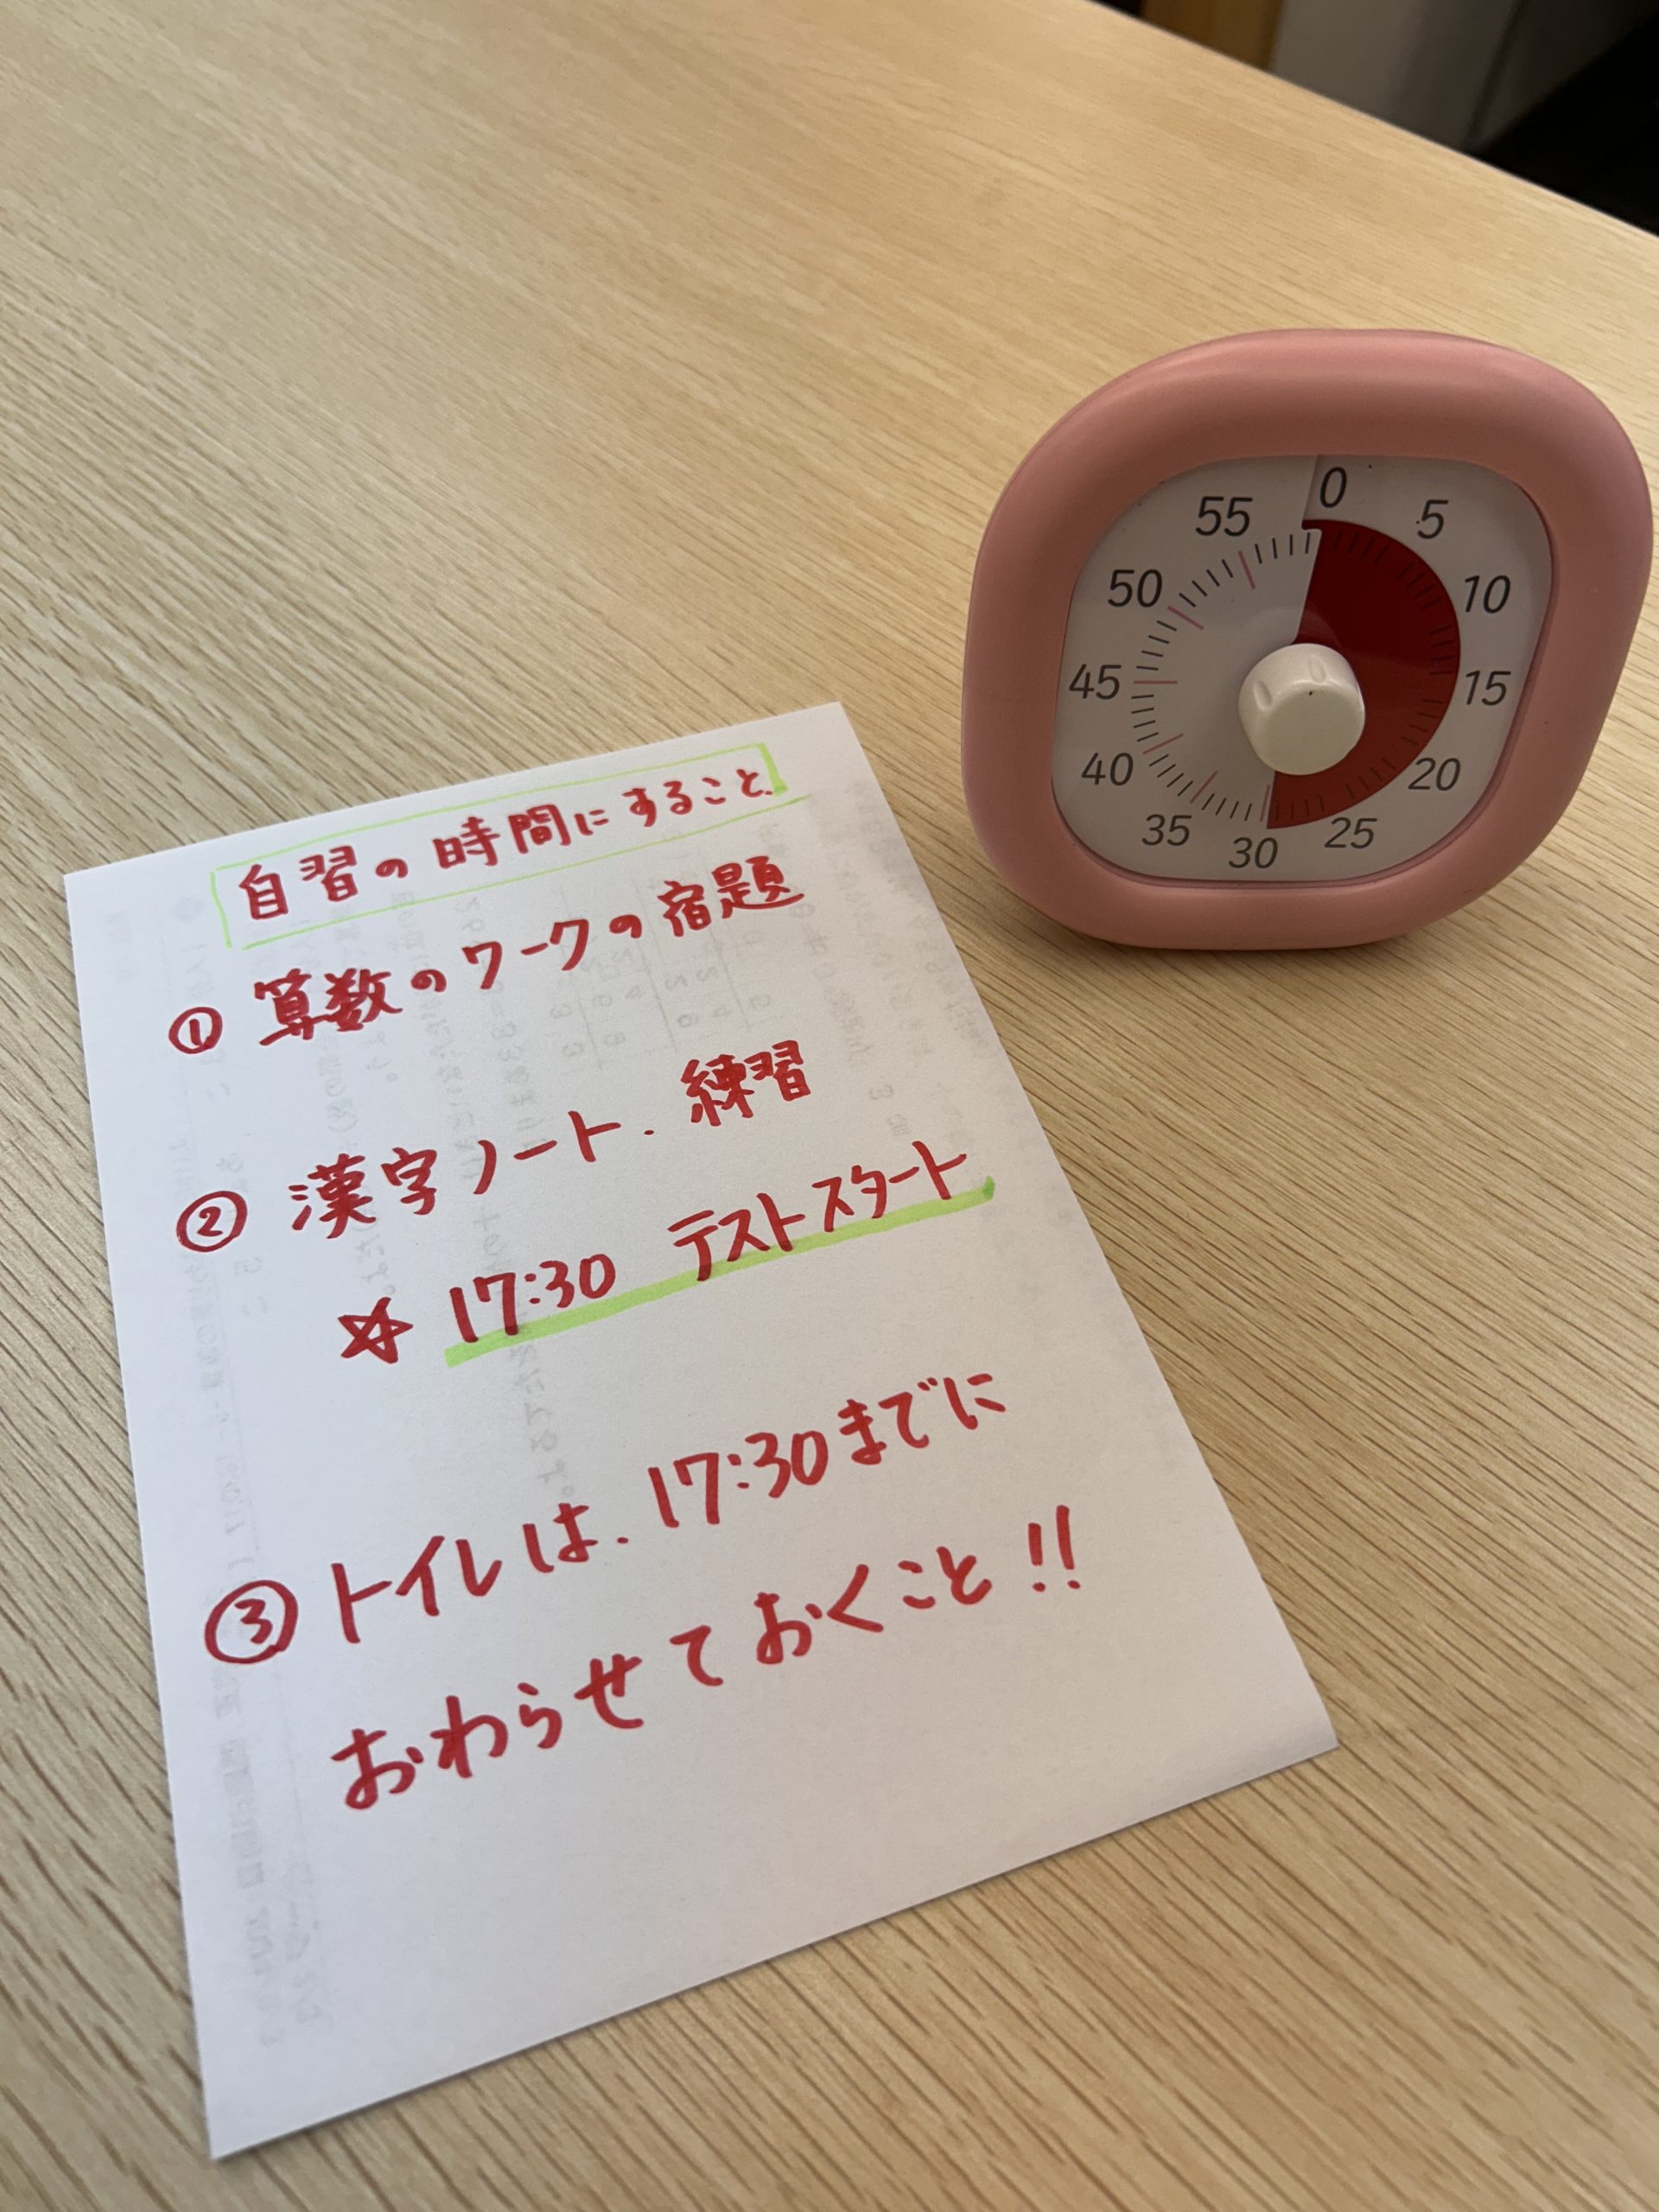 自習の時間にすること.
① 算数のワークの宿題
② 漢字ノート. 練習
☆ 17:30 テストスタート
③ トイレは. 17:30までに
おわらせておくこと!!
0
5
10
15
20
25
30
35
40
45
50
55